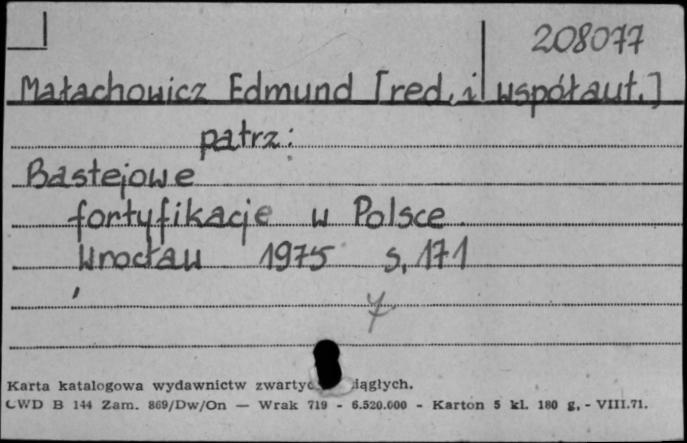 208077
Małachowicz Edmund [red. i współaut.]
patrz:
Bastejowe
fortyfikacje w Polsce.
Wrocław 1975 s. 171
7
Karta katalogowa wydawnictw ciągłych.
CWD B 144 Zam. 869/Dw/On — Wrak 719 - 6.520.000 - Karton 5 kl. 180 g, - VIII.71.